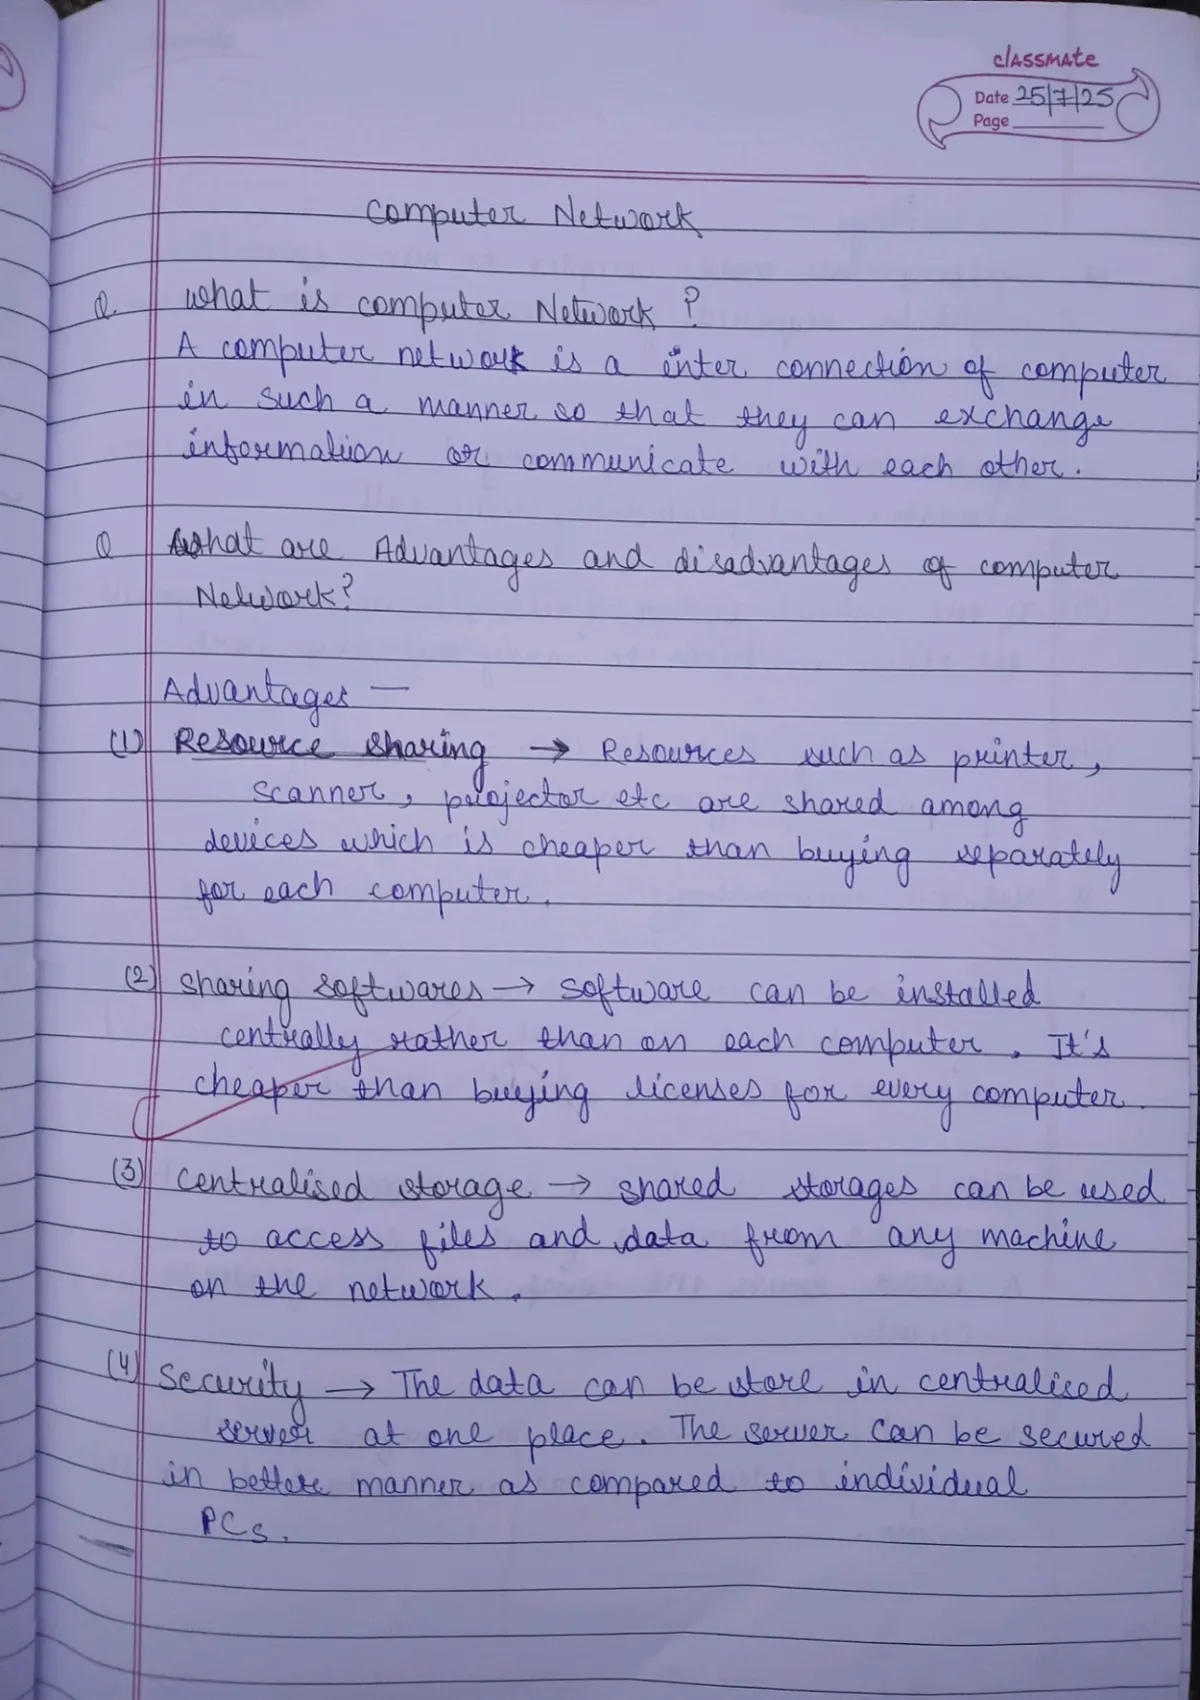 classmate
Date 25/7/25
Page
Computer Network
Q. What is computer Network ?
A computer network is a inter connection of computer
in such a manner so that they can exchange
information or communicate with each other.
Q What are Advantages and disadvantages of computer
Network?
Advantages —
(1) Resource sharing → Resources such as printer,
scanner, projector etc are shared among
devices which is cheaper than buying separately
for each computer.
(2) Sharing softwares → software can be installed
centrally rather than on each computer. It's
cheaper than buying licenses for every computer.
(3) Centralised storage → shared storages can be used
to access files and data from any machine
on the network.
(4) Security → The data can be store in centralised
server at one place. The server can be secured
in better manner as compared to individual
PCs.